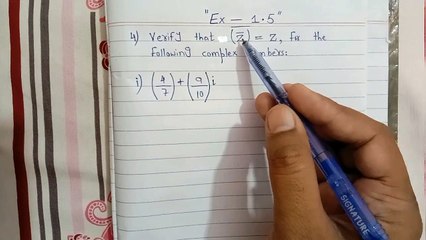 "Ex — 1.5"
4) Verify that (z̿) = z, for the
following complex numbers:
i) (4/7) + (9/10) i
SIGNATURE